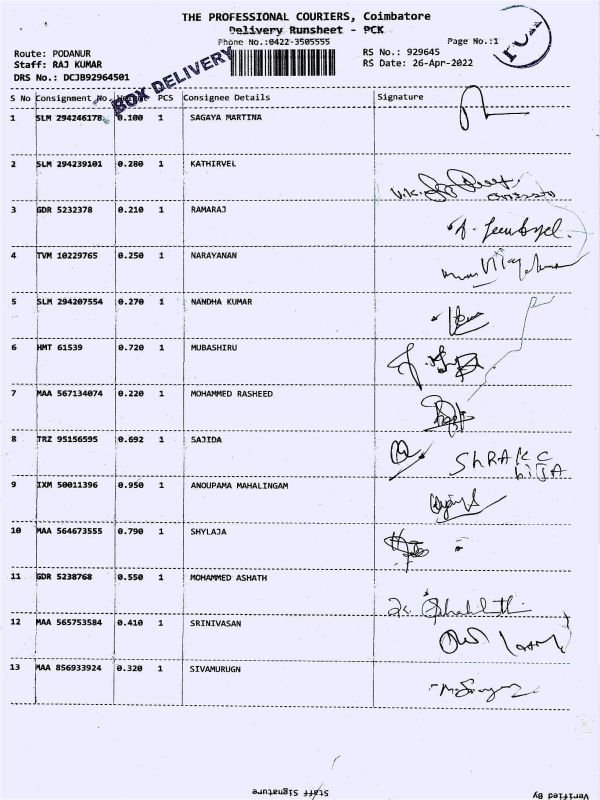 THE PROFESSIONAL COURIERS, Coimbatore
Delivery Runsheet - PCK
Phone No.:0422-3505555
Page No.:1
Route: PODANUR
RS No.: 929645
Staff: RAJ KUMAR
RS Date: 26-Apr-2022
DRS No.: DCJB92964501
BOX DELIVERY
S No Consignment No. PCS Consignee Details Signature
1 SLM 294246178 0.100 1 SAGAYA MARTINA
2 SLM 294239101 0.280 1 KATHIRVEL
3 GDR 5232378 0.210 1 RAMARAJ
4 TVM 10229765 0.250 1 NARAYANAN
5 SLM 294207554 0.270 1 NANDHA KUMAR
6 HMT 61539 0.720 1 MUBASHIRU
7 MAA 567134074 0.220 1 MOHAMMED RASHEED
8 TRZ 95156595 0.692 1 SAJIDA
9 IXM 50011396 0.950 1 ANOUPAMA MAHALINGAM
10 MAA 564673555 0.790 1 SHYLAJA
11 GDR 5238768 0.550 1 MOHAMMED ASHATH
12 MAA 565753584 0.410 1 SRINIVASAN
13 MAA 856933924 0.320 1 SIVAMURUGN
Staff Signature
Verified By